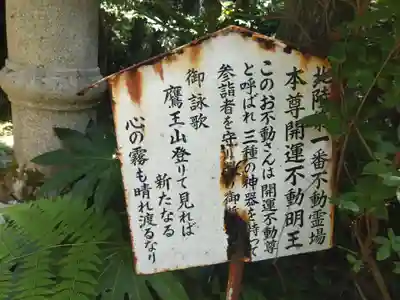 北陸第一番不動霊場
本尊開運不動明王
このお不動さんは開運不動尊
と呼ばれ三種の神器を持って
参詣者を守り
御詠歌
鷹王山登りて見れば
新たなる
心の霧も晴れ渡るなり